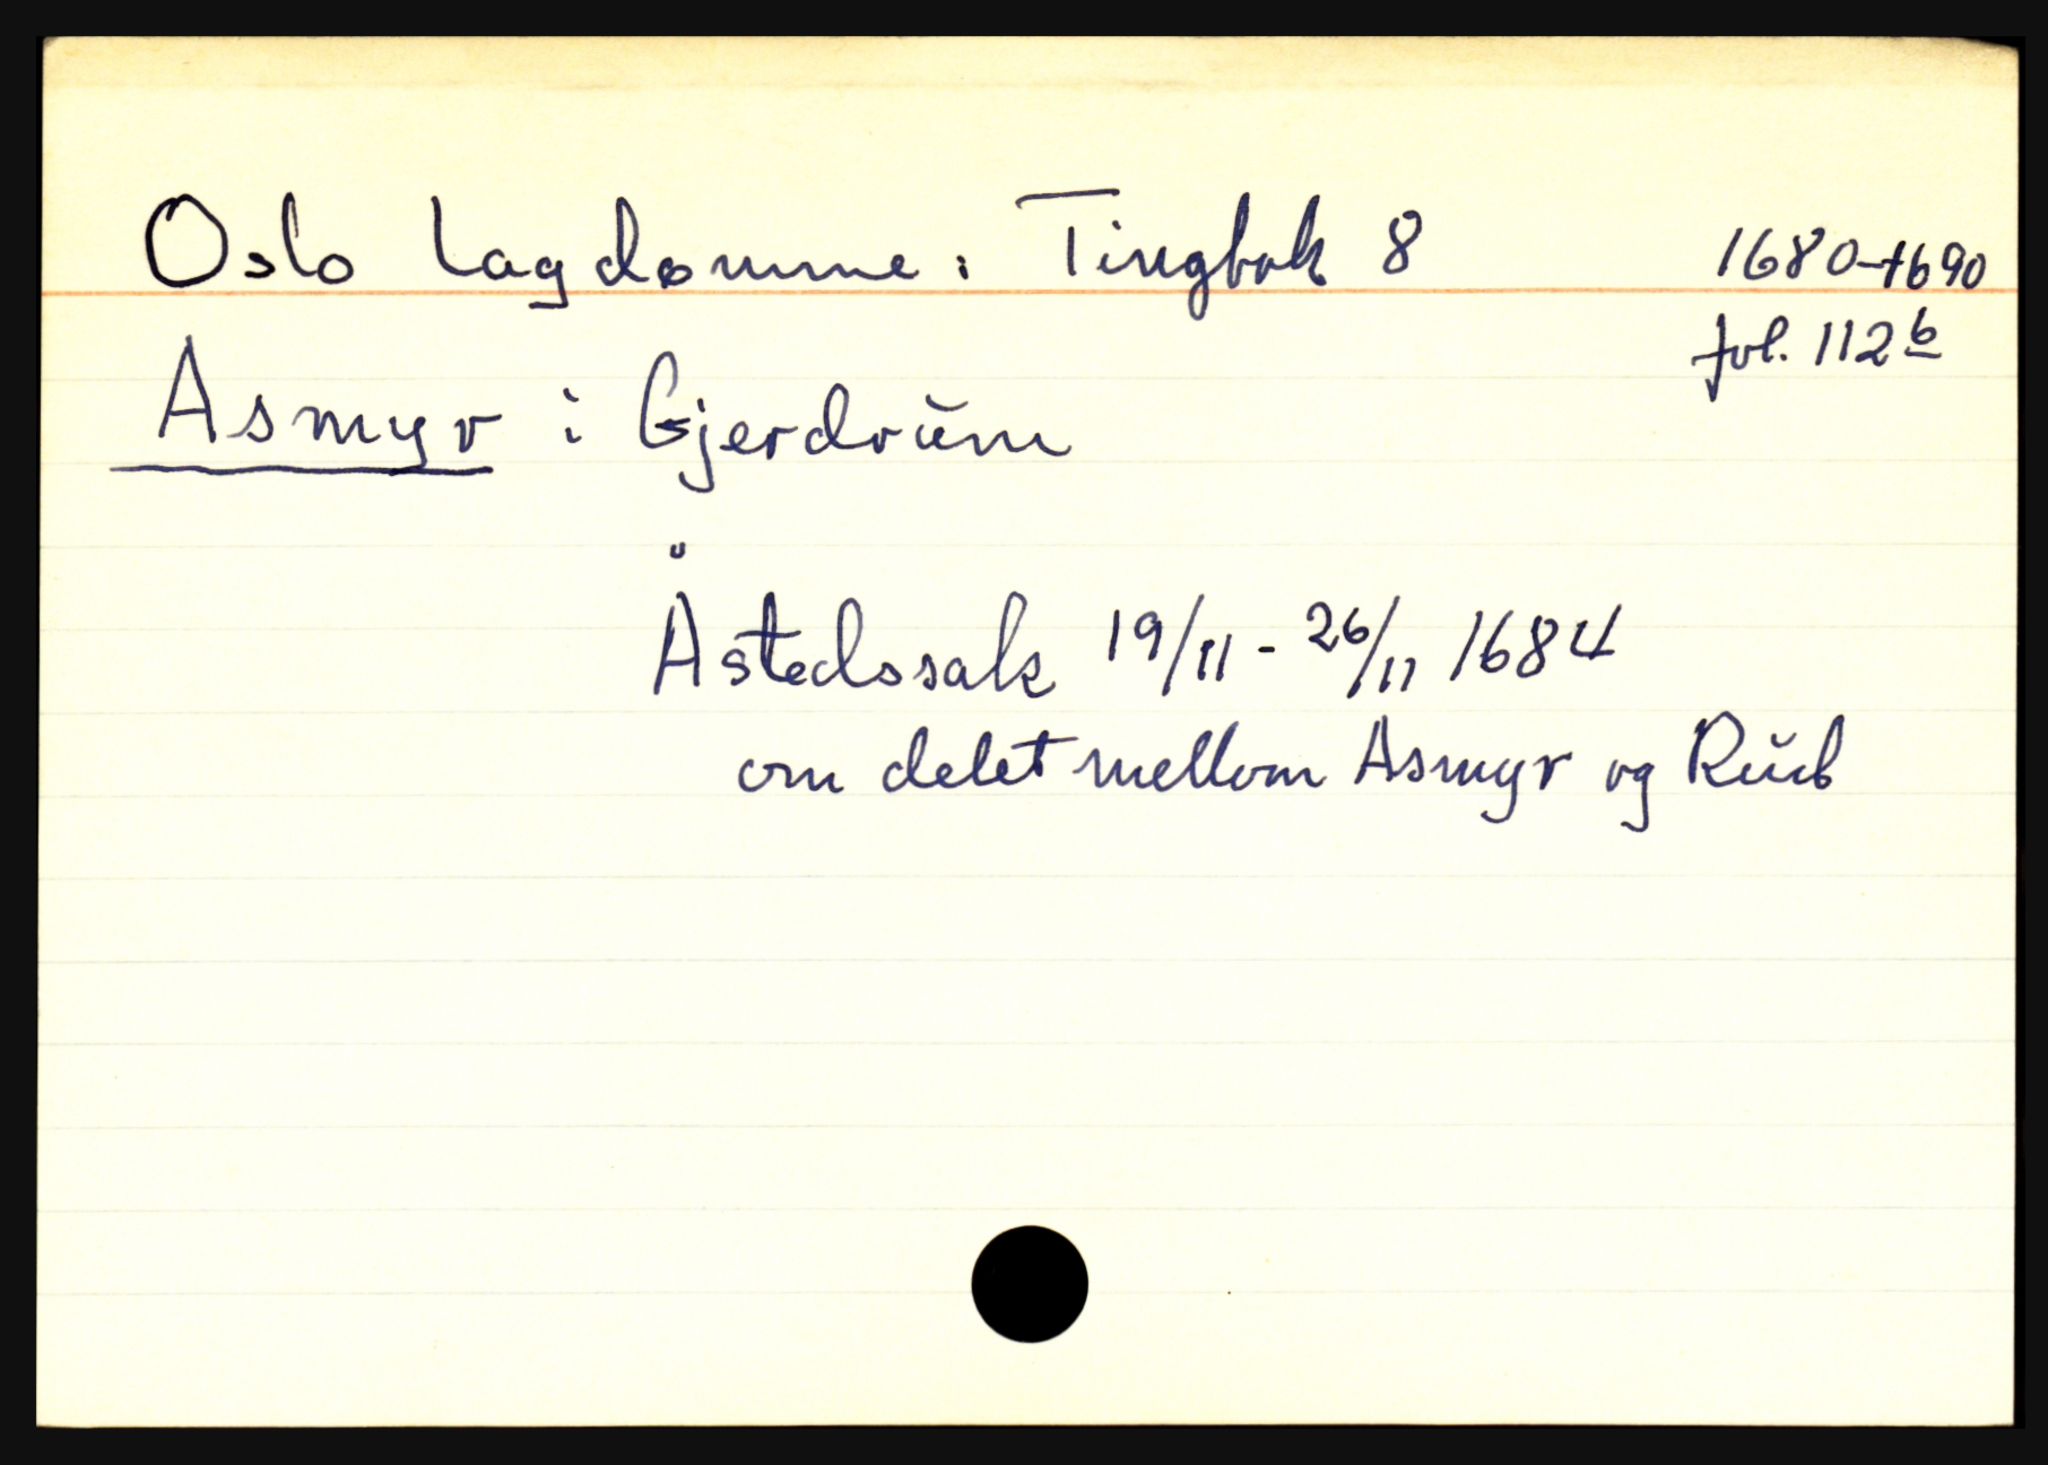 Oslo lagdømme: Tingbok 8 1680-1690
fol. 112b
Asmyr i Gjerdrum
Åstedssak 19/11 - 26/11 1684
om delet mellom Asmyr og Rud